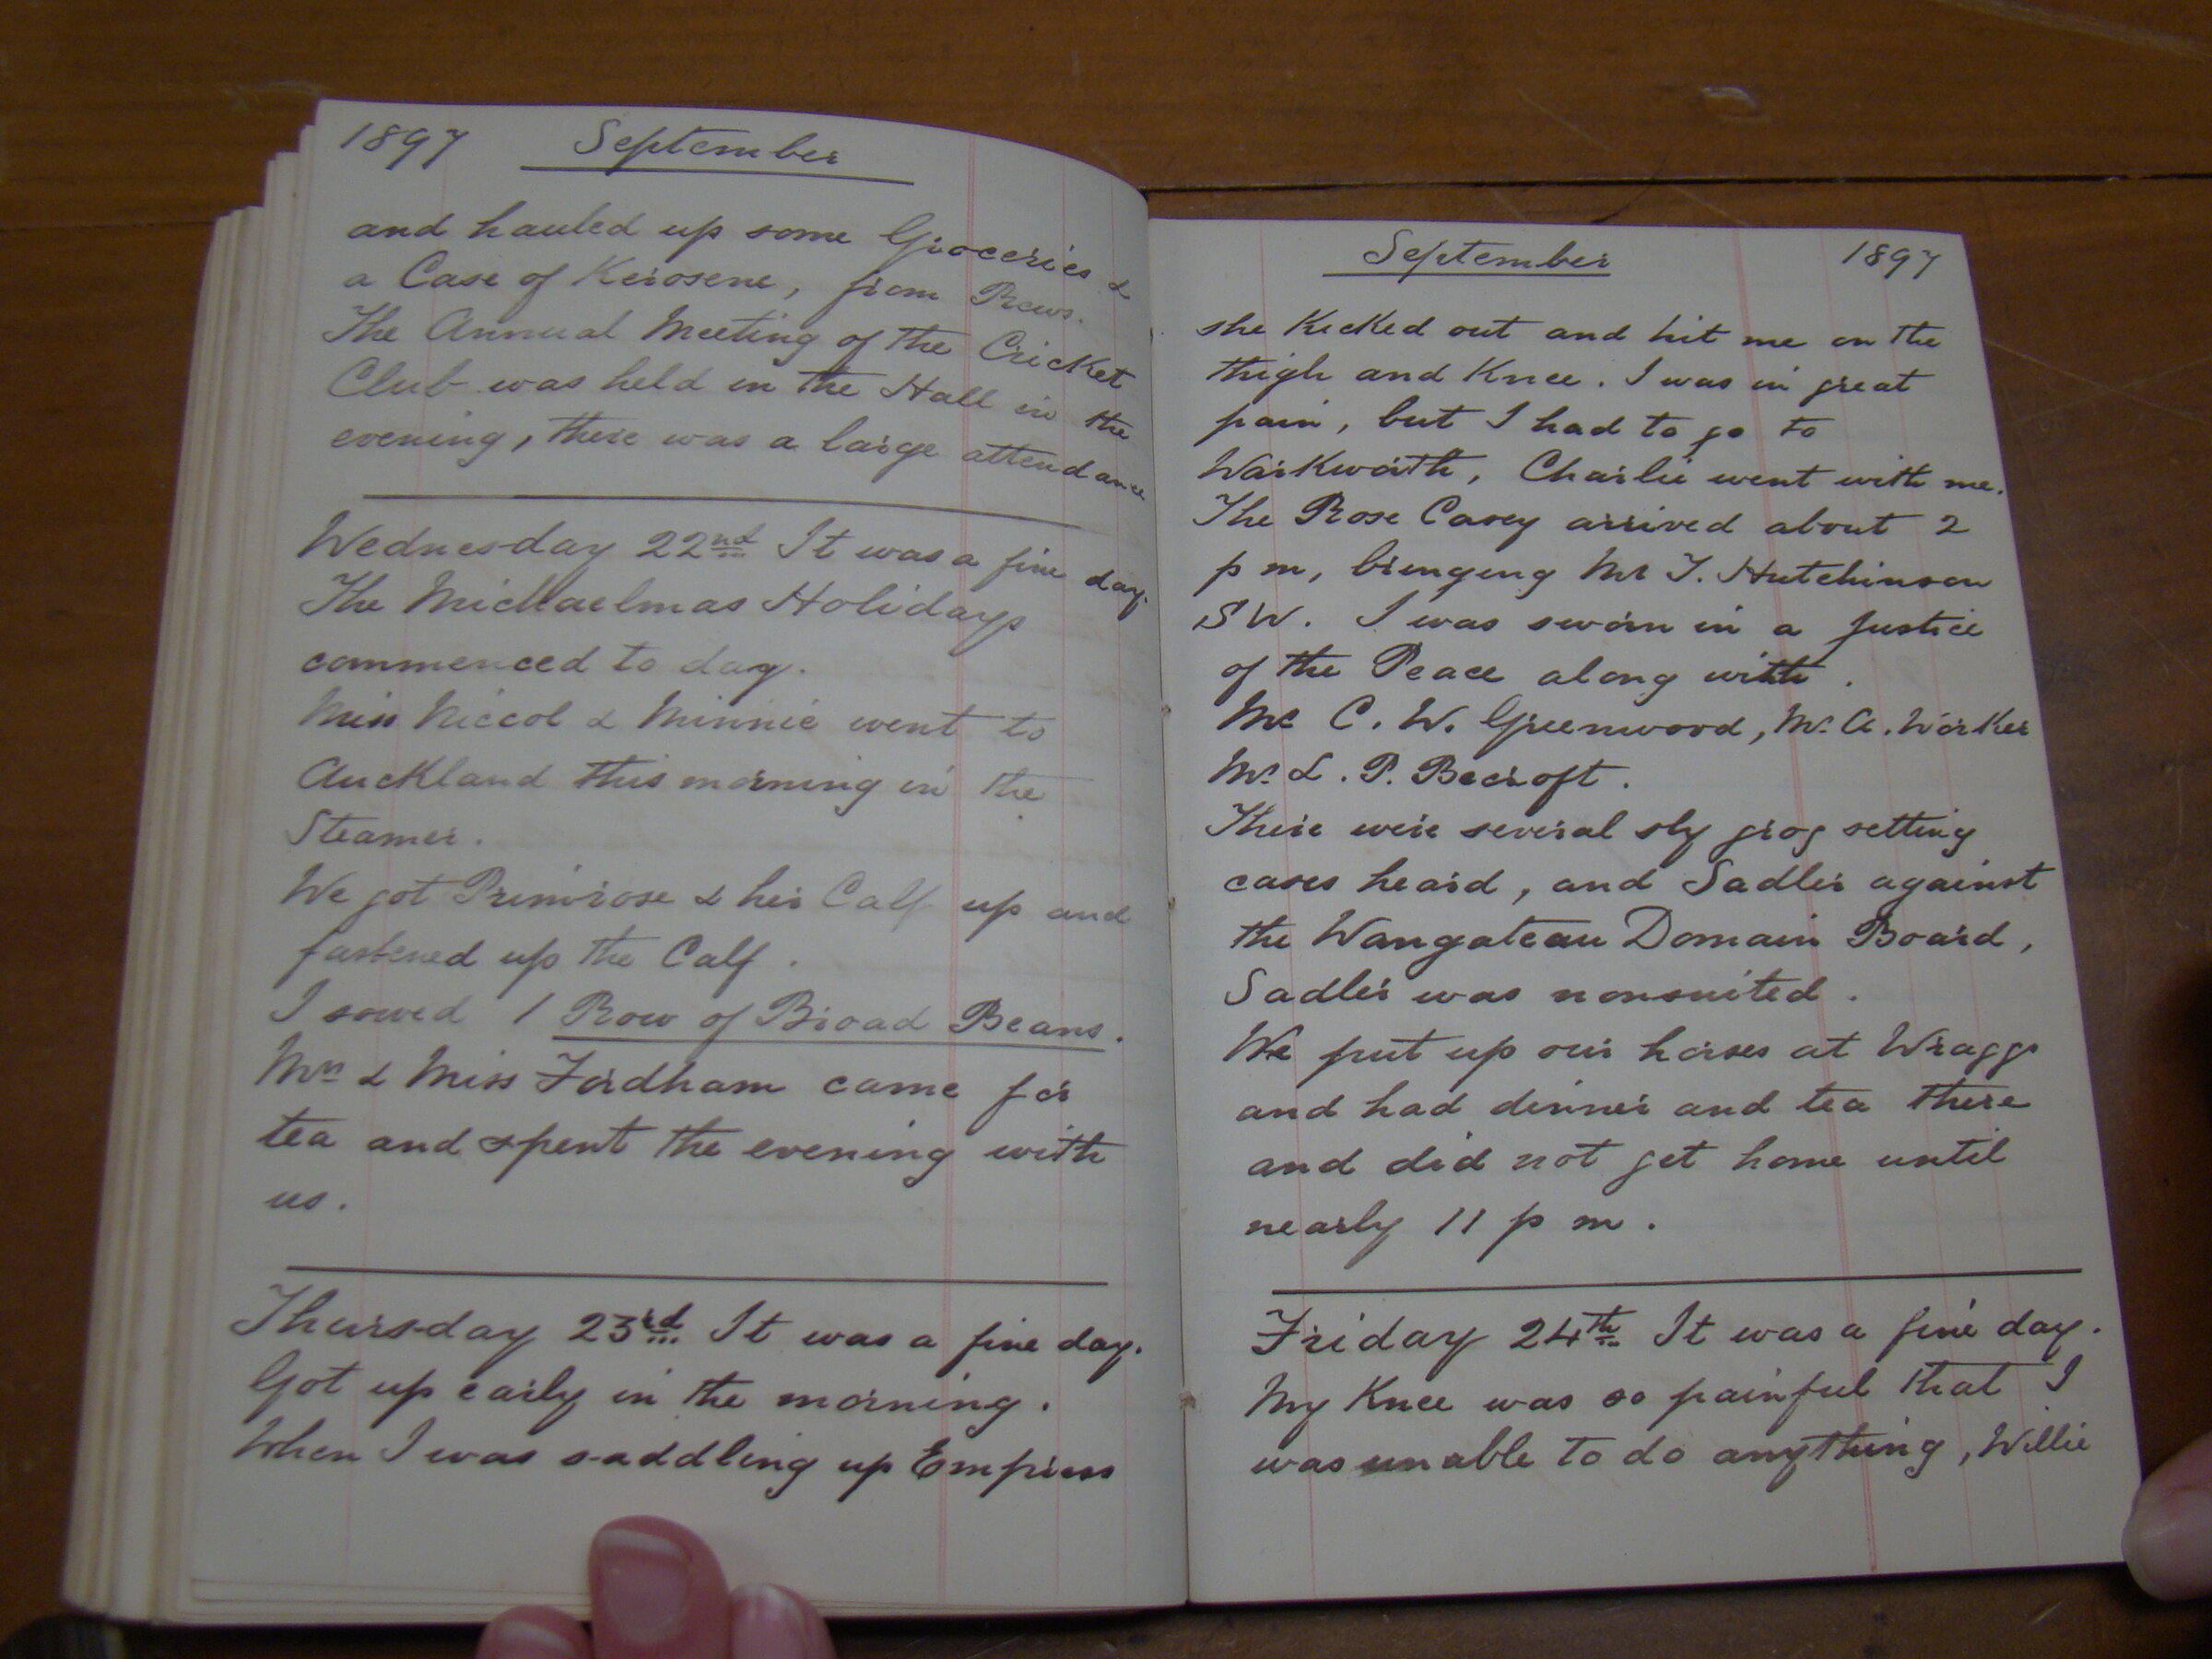 1897 September
and hauled up some Groceries &
a Case of Kerosene, from Rews.
The Annual Meeting of the Cricket
Club was held in the Hall in the
evening, there was a large attendance
Wednesday 22nd It was a fine day.
The Michaelmas Holidays
commenced to day.
Miss Niccol & Minnie went to
Auckland this morning in the
Steamer.
We got Primrose & her Calf up and
fastened up the Calf.
I sowed 1 Row of Broad Beans.
Mrs & Miss Fordham came for
tea and spent the evening with
us.
Thursday 23rd It was a fine day.
Got up early in the morning.
When I was saddling up Empress
September 1897
she Kicked out and hit me on the
thigh and Knee. I was in great
pain, but I had to go to
Warkworth, Charlie went with me.
The Rose Casey arrived about 2
p m, bringing Mr T. Hutchinson
S W. I was sworn in a Justice
of the Peace along with.
Mr C. W. Greenwood, Mr A. Worker
Mr L. P. Becroft.
There were several sly grog selling
cases heard, and Sadler against
the Wangateau Domain Board,
Sadler was nonsuited.
We put up our horses at Wraggs
and had dinner and tea there
and did not get home until
nearly 11 p m.
Friday 24th It was a fine day.
My Knee was so painful that I
was unable to do anything, Willie